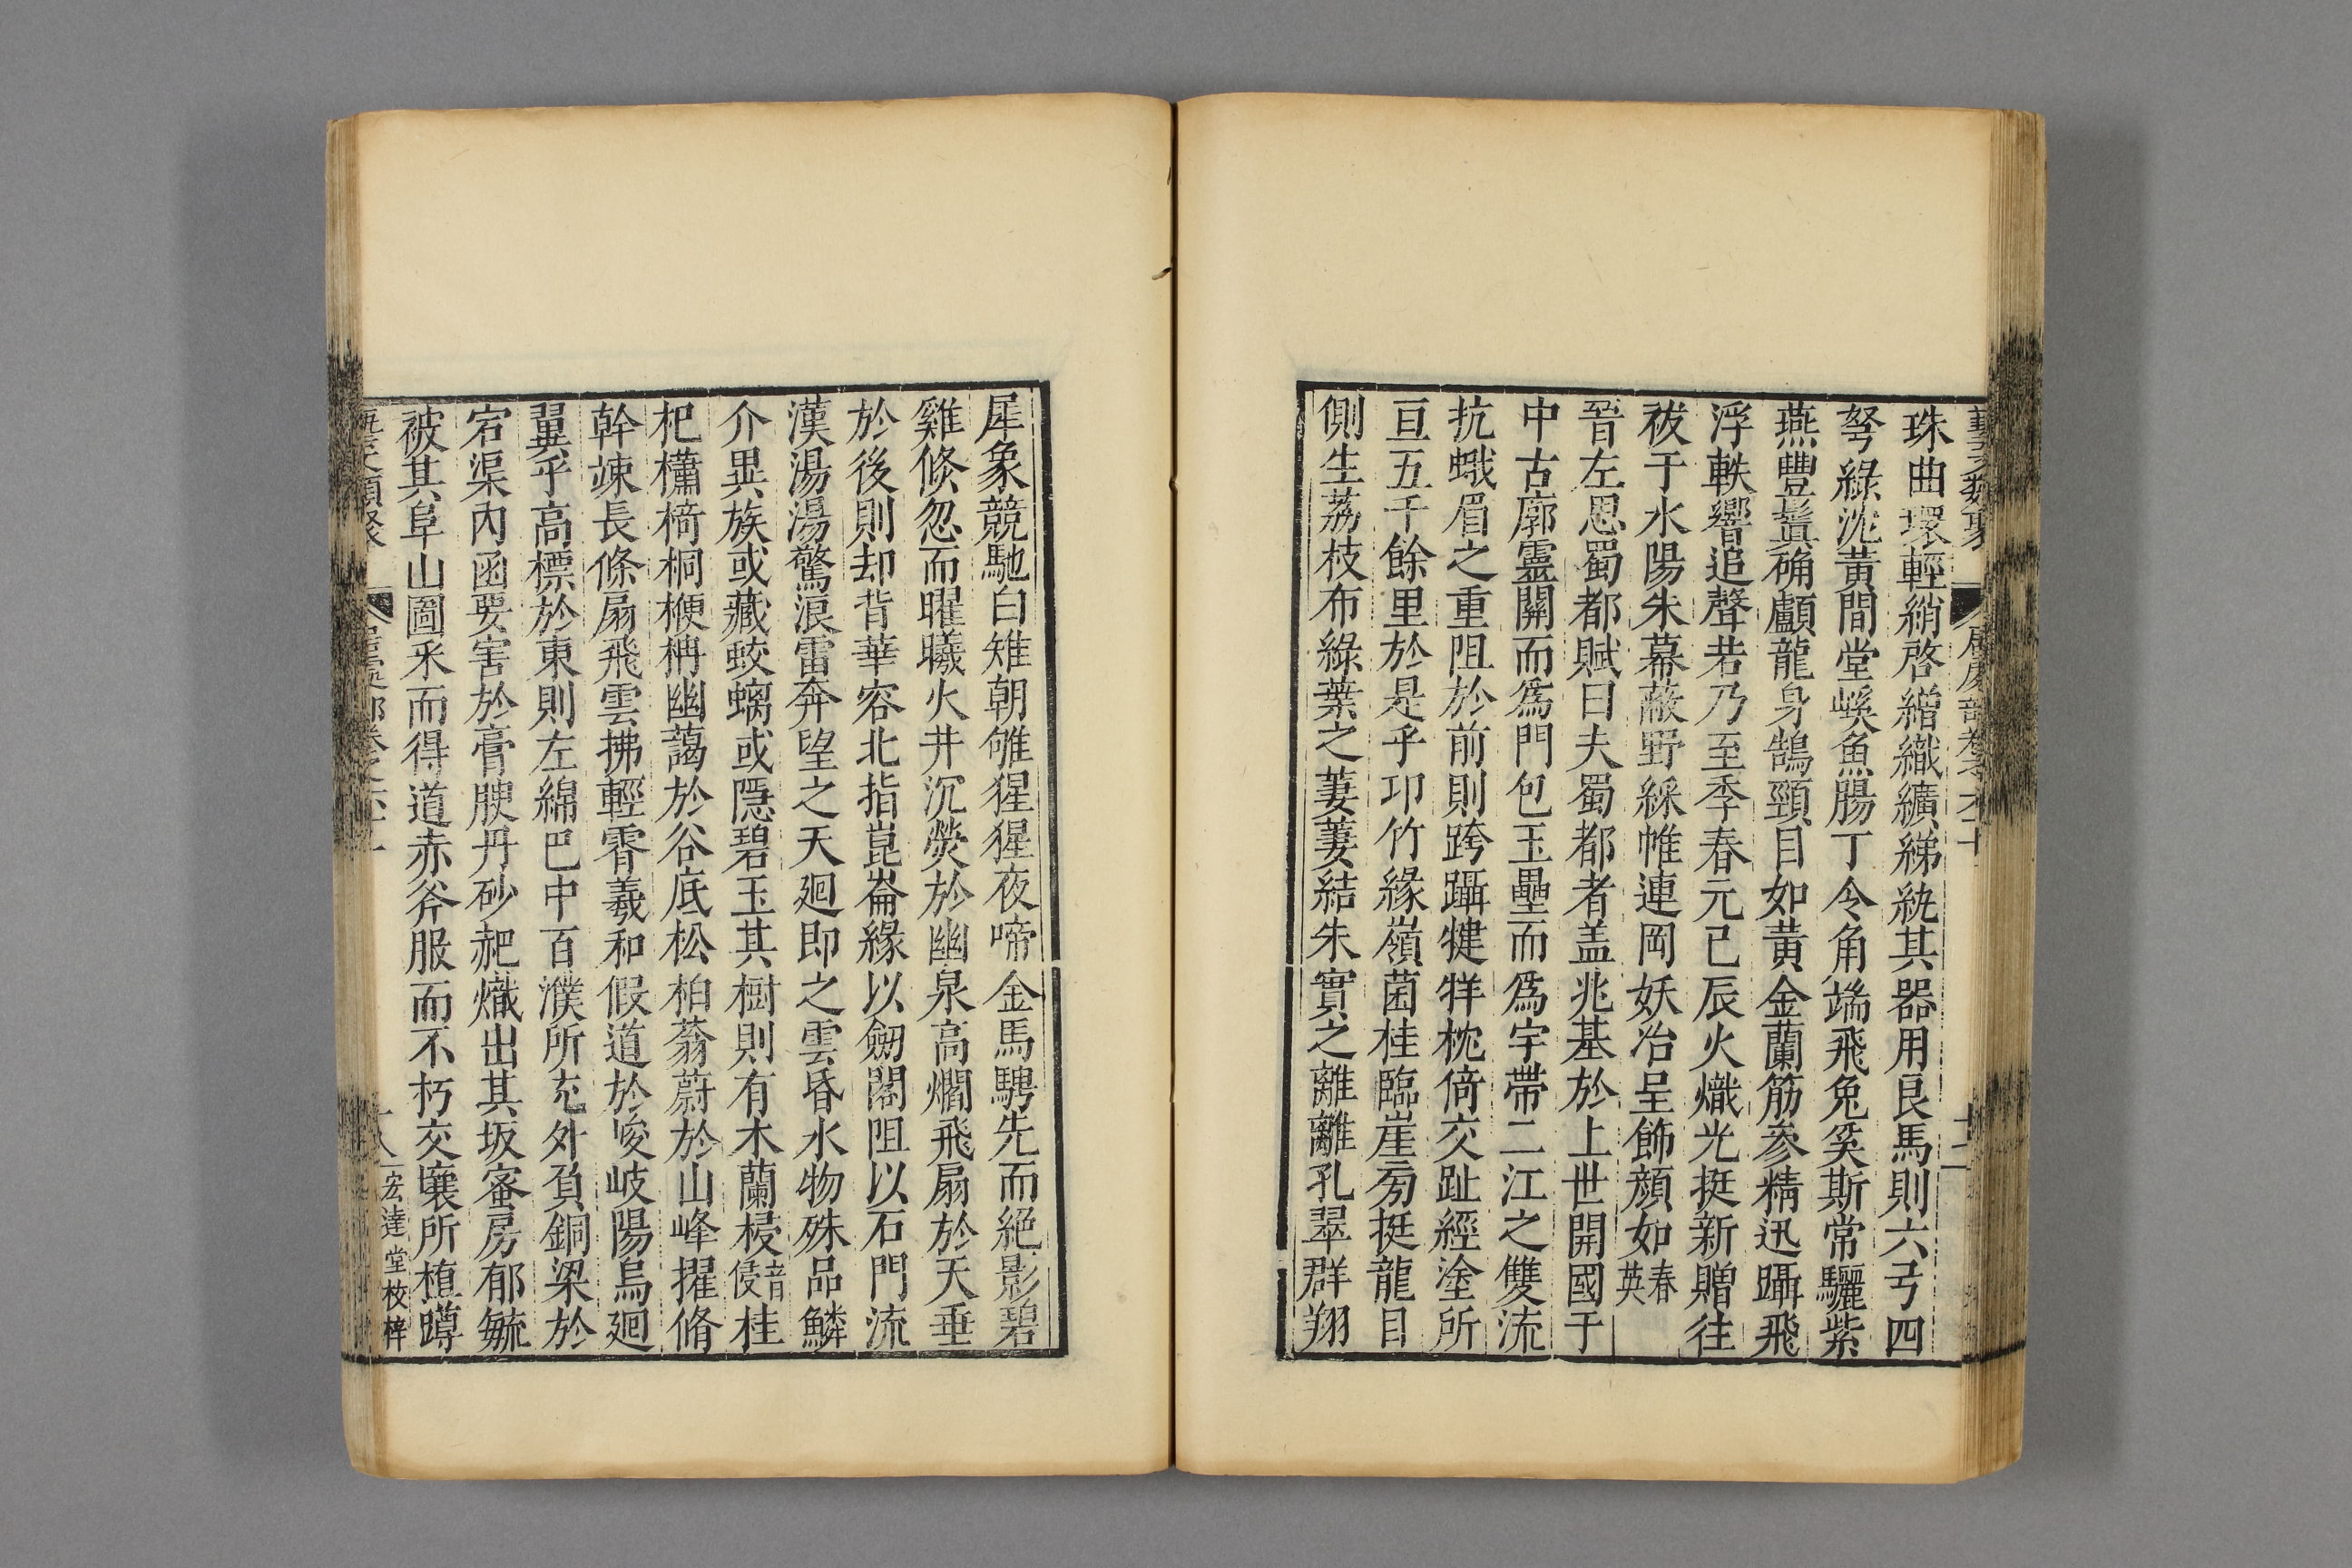 珠曲環輕綃啓繒織纊綈統其器用良馬則六弓四
弩綠沈黃間堂嵠魚腸丁令角端飛兔奚斯常驪紫
燕豐鬢确顱龍身鵠頸目如黃金蘭筋參精迅躡飛
浮軼響追聲若乃至季春元巳辰火熾光挺新贈往
祓于水陽朱幕蔽野綵帷連岡妖冶呈飾顏如春英
晉左思蜀都賦曰夫蜀都者盖兆基於上世開國于
中古廓靈關而爲門包玉壘而爲宇帶二江之雙流
抗蛾眉之重阻於前則跨躡犍牂枕倚交趾經塗所
亘五千餘里於是乎卭竹緣嶺菌桂臨崖旁挺龍目
側生荔枝布綠葉之萋萋結朱實之離離孔翠群翔
犀象競馳白雉朝雊猩猩夜啼金馬騁先而絕影碧
雞倏忽而曜曦火井沉熒於幽泉高爓飛扇於天垂
於後則却背華容北指崑崙緣以劒閣阻以石門流
漢湯湯驚浪雷奔望之天廻即之雲昏水物殊品鱗
介異族或藏蛟螭或隱碧玉其樹則有木蘭梫音侵桂
杞櫹椅桐楩枏幽藹於谷底松柏蓊蔚於山峰擢脩
幹竦長條扇飛雲拂輕霄羲和假道於峻岐陽烏廻
翼乎高標於東則左綿巴中百濮所充外負銅梁於
宕渠內函要害於膏腴丹砂赩熾出其坂蜜房郁毓
被其阜山圖采而得道赤斧服而不朽交壤所植蹲
宏達堂校梓